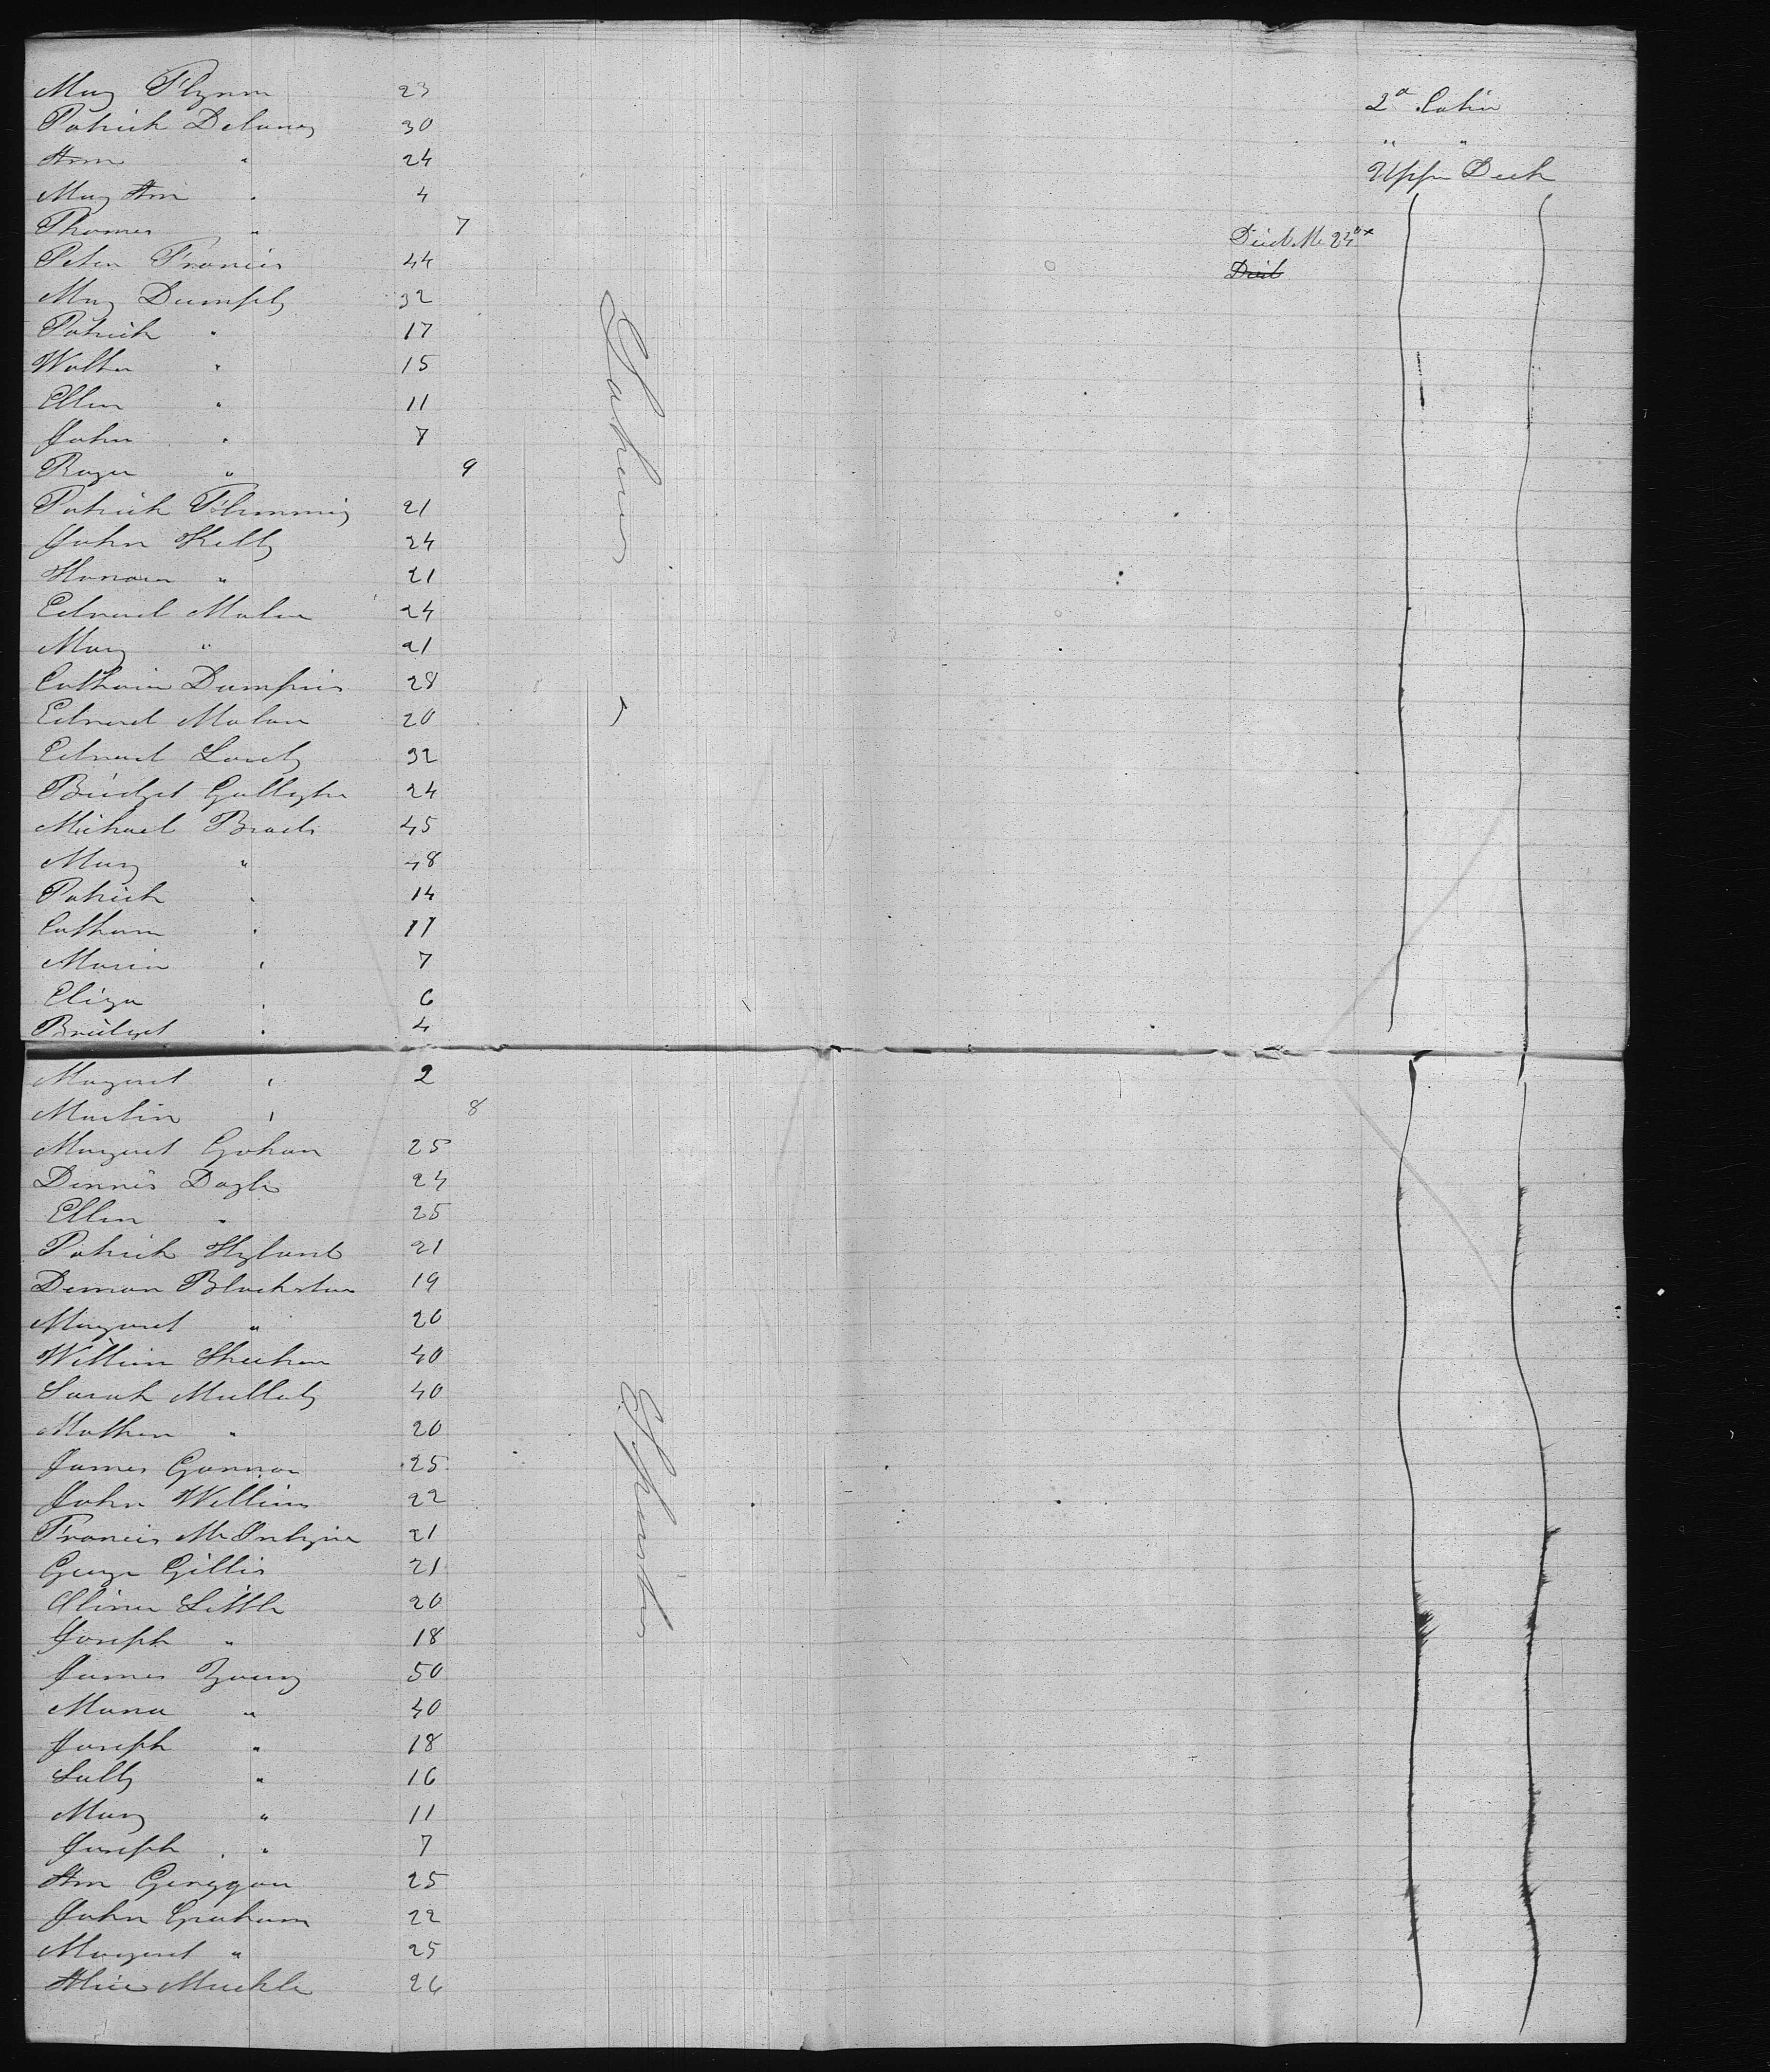 Mary Flynn 23 2d Cabin
Patrick Delaney 30 " "
Ann " 24 Upper Deck
Mary Ann " 4
Thomas " 7 Died
Peter Francis 44 Died
Mary Dumphy 32
Patrick " 17
Walter " 15
Ellen " 11
John " 7
Roger " 9
Patrick Flemming 21
John Kelly 24
Honora " 21
Edward Malon 24
Mary " 21
Catharin Dumphies 28
Edward Malon 20
Edward 32
Bridget Gallagher 24
Michael 45
Mary " 48
Patrick " 14
Catharin " 11
Maria " 7
Eliza " 6
Bridget " 4
Margaret " 2
Martin " 8
Margaret Gohan 25
Dennis Doyle 24
Ellen " 25
Patrick Hyland 21
Blackstone 19
Margaret " 20
William Sheehan 40
Sarah Mullaly 40
Mathew " 20
James Gannon 25
John William 22
Francis McIntyre 21
George Gillis 21
Oliver Little 20
Joseph " 18
James Young 50
Maria " 40
Joseph " 18
Sally " 16
Mary " 11
Joseph " 7
Ann 25
John Graham 22
Margaret " 25
Alice Muckle 26